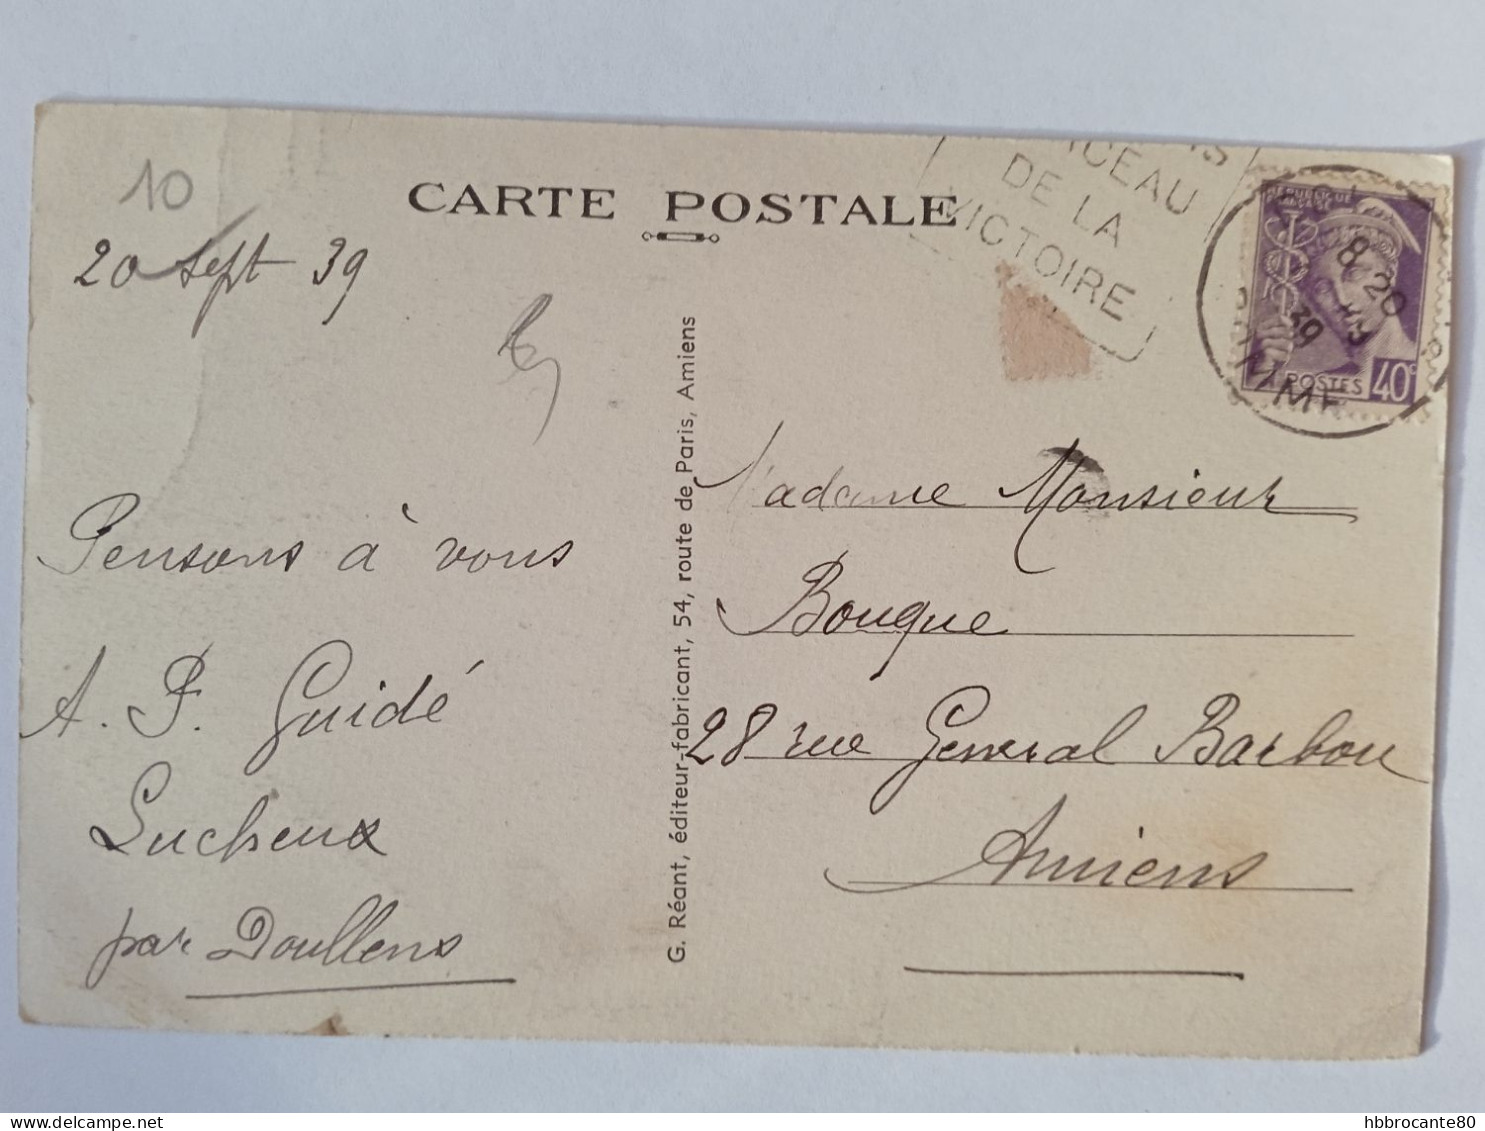 10
CARTE POSTALE
20 sept 39
CEAU
DE LA
VICTOIRE
RÉPUBLIQUE
FRANÇAISE
8 20
39
POSTES 40c
SOMME
Madame Monsieur
Bouque
28 rue General Barbou
Amiens
Pensons à vous
A. P. Guidé
Lucheux
par Doullens
G. Réant, éditeur-fabricant, 54, route de Paris, Amiens
delcampe.net
hbbrocante80